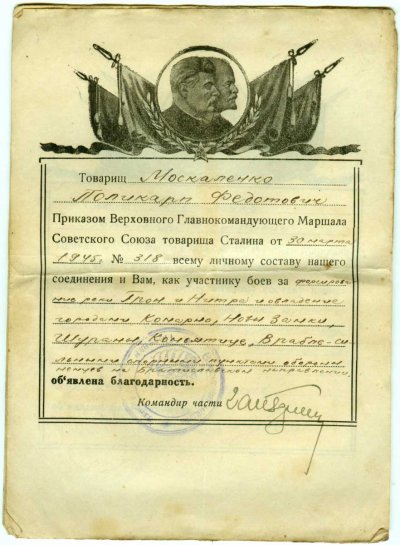 Товарищ Москаленко
Поликарп Федотович
Приказом Верховного Главнокомандующего Маршала
Советского Союза товарища Сталина от 30 марта
1945г. № 318 всему личному составу нашего
соединения и Вам, как участнику боев за форсирова-
ние реки Грон и Нитра и овладение
городами Комарно, Нове Замки,
Шураны, Комьятице, Врабле-си
льными опорными пунктами обороны
немцев на Братиславском направлении
объявлена благодарность.
Командир части